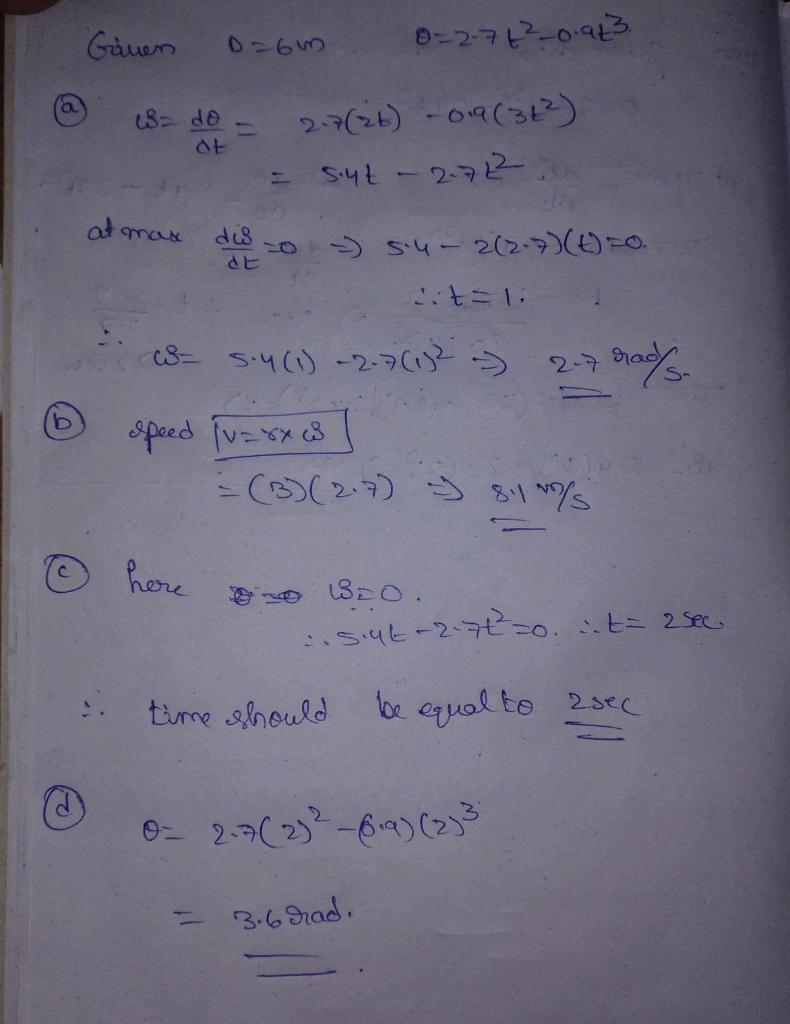 Given D=6m θ=2.7t²-0.9t³
(a) ω= dθ/dt = 2.7(2t) - 0.9(3t²)
= 5.4t - 2.7t²
at max dω/dt =0 ⇒ 5.4 - 2(2.7)(t)=0.
∴ t=1.
∴ ω= 5.4(1) -2.7(1)² ⇒ 2.7 rad/s.
(b) speed V=r×ω
=(3)(2.7) ⇒ 8.1 m/s
(c) here ω=0.
∴ 5.4t-2.7t²=0. ∴ t= 2sec.
∴ time should be equal to 2sec
(d)
θ= 2.7(2)² -(0.9)(2)³
= 3.6 rad.